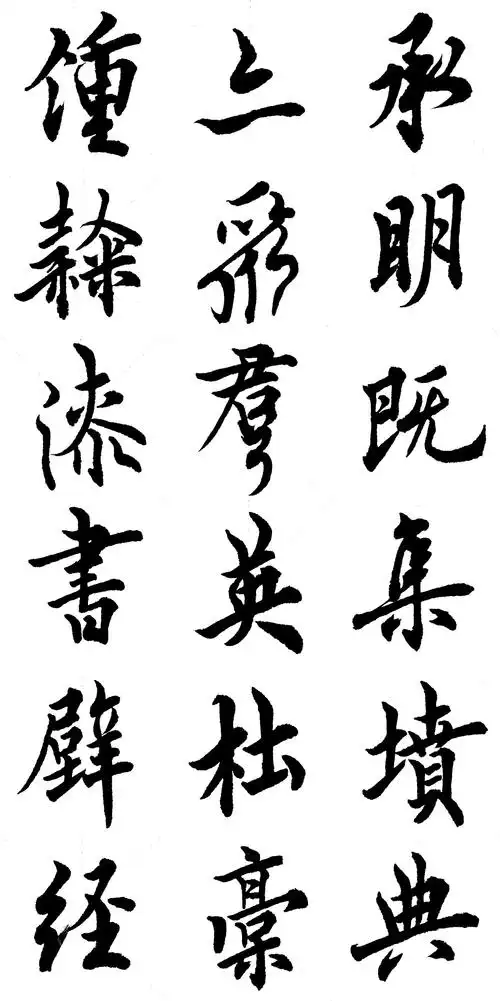 承明既集墳典
亦聚羣英杜稾
鍾隸漆書壁経